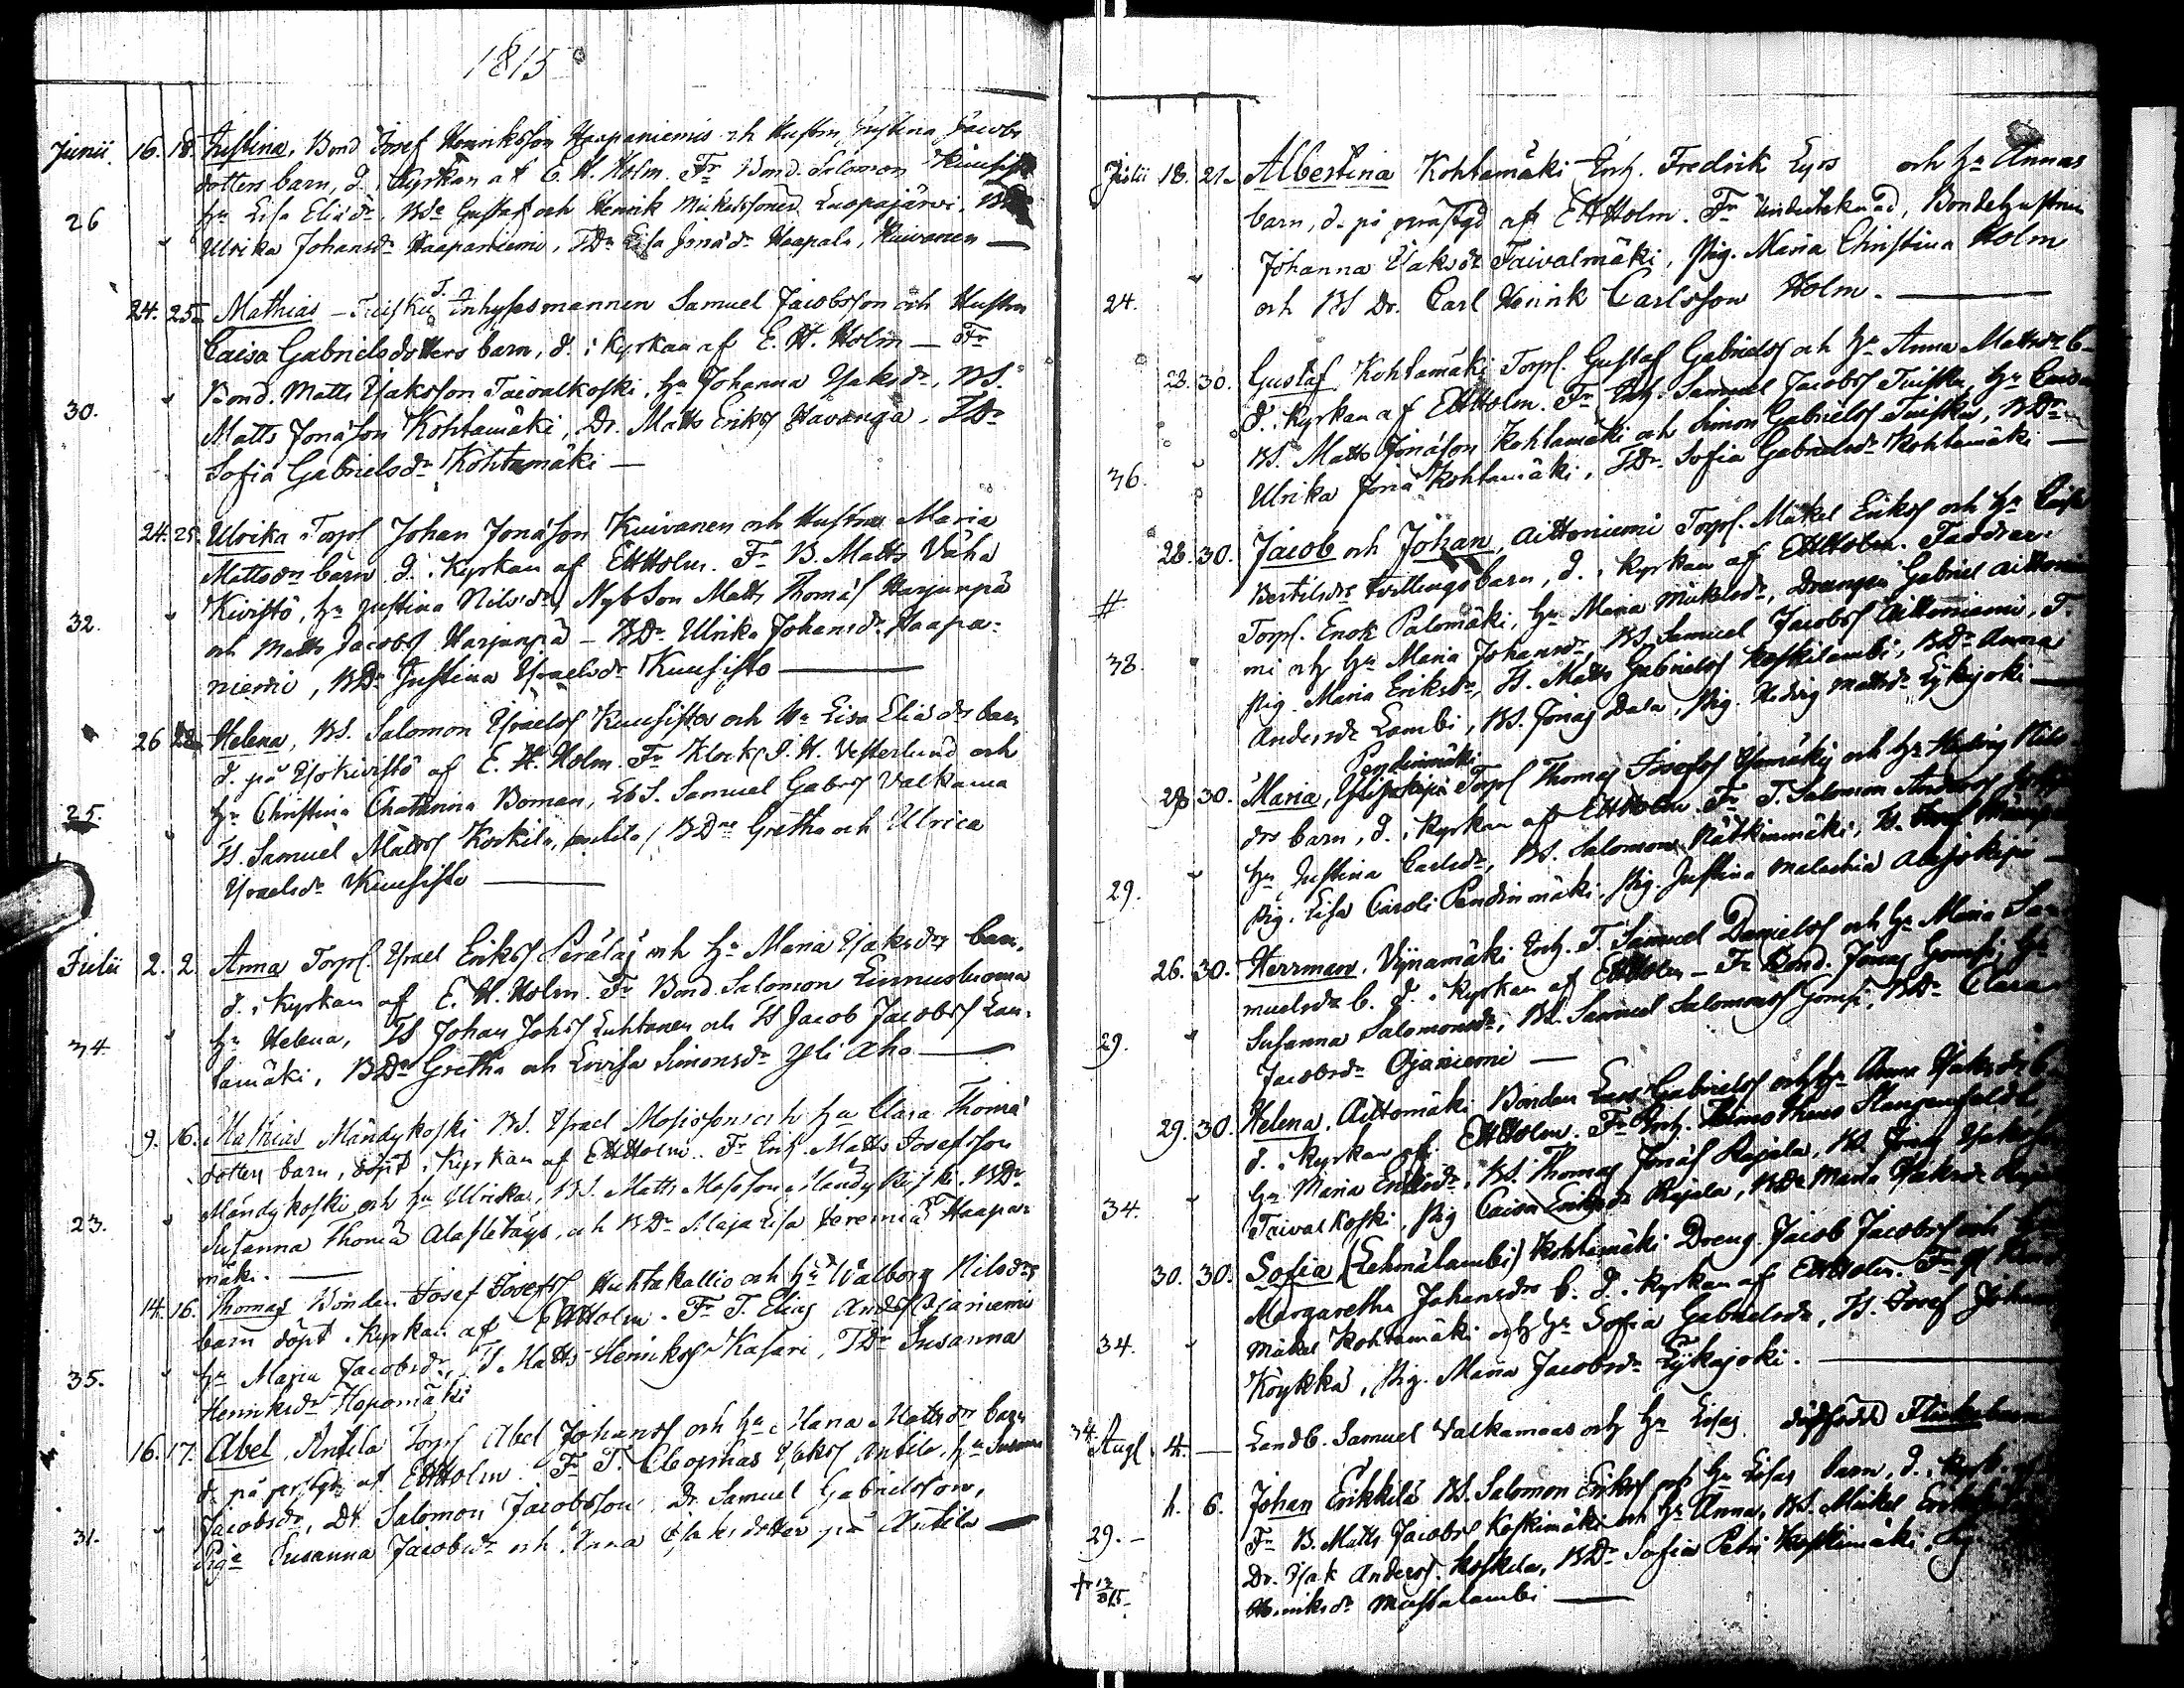 1815
Junii 16. 18. Justina, Bond Josef Henriksson Haapaniemis och Hustru Justina Jacobs
dotters barn, d. i Kyrkan af E. H. Holm. Fr Bond. Salomon Kuusisto
26 hu Lisa Eliæ dr, BSr Gustaf och Henrik Mickelssöner Luopajärvi,
Ulrika Johansdr Haapaniemi, TDr Lisa Jonæ dr Haapala, Kuivanen —
24. 25. Mathias – Tuisku T. Inhysesmannen Samuel Jacobsson och Hustru
Caisa Gabrielsdotters barn, d. i kyrkan af E. H. Holm — Fr
Bond. Matts Isaksson Taivalkoski, hu Johanna Isaksdr, BS.
30. Matts Jonæson Kohtamäki, Dr. Matts Eriks Havanga, TDr
Sofia Gabrielsdr Kohtamäki —
24. 25. Ulrika Torp Johan Jonæson Kuivanen och Hustrus Maria
Mattsdrs barn d. i Kyrkan af EHHolm. Fr B. Matts Vähä
Kivistö, hu Justina Nilsdr, Nyb Son Matts Thomæ Harjunpä
32. och Matts Jacobs Harjunpä — BDr Ulrika Johansdr Haapa-
niemi, BDr Justina Israelsdr Kuusisto —
26 Helena, BS. Salomon Israels Kuusistos och hu Lisa Eliæ drs barn
d. på Isokivistö af E. H. Holm. Fr Klock J. H. Vesterlund och
25. hu Christina Chatarina Boman, LbS. Samuel Gabrs Valkama
TS. Samuel Matts Koskila, BDrs Gretha och Ulrica
Israelsdr Kuusisto —
Julii 2. 2. Anna Torp. Israel Eriks Peräläs och hu Maria Isaksdrs barn
d. i Kyrkan af E. H. Holm. Fr Bond. Salomon Linnusluoma
34. hu Helena, TS Johan Johs Luhtanen och TS Jacob Jacobs Lau-
tamäki, BDr Gretha och Lovisa Simonsdr Yli Aho —
9. 16. Mathias Mändykoski BS. Israel Mosisson och hu Clara Thomæ
dotters barn, döpt i Kyrkan af EHHolm. Fr Matts Josefsson
Mändykoski och hu Ulrika, BS. Matts Moseson Mändykoski, BDr
23. Susanna Thomæ Alasletäys, och BDr Maja Lisa Jeremiæ Haapa-
mäki. —
14. 16. Thomas Bonden Josef Josefs Huhtakallio och hu Walborg Nilsdrs
barn döpt i Kyrkan af EHHolm. Fr T. Elias Anders Ojaniemi
35. hu Maria Jacobsdr, T. Matts Henriks Kasari, TDr Susanna
Henriksdr Hopomäki
16. 17. Abel, Antila Torp Abel Johans och hu Maria Mattsdrs barn
d. på af EHHolm. Fr T. Cleophas Isaks Antila, hu Susanna
Jacobsdr, Dr. Salomon Jacobsson, Dr Samuel Gabrielsson,
31. Piga Susanna Jacobsdr och Anna Isaksdotter på Antila —
Julii 18. 21. Albertina Kohtamäki Inh. Fredrik Lyis och hu Annas
barn, d. på prästgd af EHHolm. Fr Undertecknad, Bondehustrun
Johanna Isaksdr Taivalmäki, Pig. Maria Christina Holm
24. och BS Dr. Carl Henrik Carlsson Holm. —
28. 30. Gustaf Kohtamäki Torp. Gustaf Gabriels och hu Anna Mattsdr b.
d. i kyrkan af EHHolm. Fr Inh. Samuel Jacobs Tuisku, hu
BS. Matts Jonæson Kohtamäki och Simon Gabriels Tuisku, BDr
36. Ulrika Jonæ Kohtamäki, TDr. Sofia Gabrielsdr Kohtamäki —
28. 30. Jacob och Johan, Aittoniemi Torp. Mickel Eriks och hu
Bertilsdrs tvillingsbarn, d. i kyrkan af EHHolm. Faddrar:
Torp. Enok Palomäki, hu Maria Mickelsdr, Drängen Gabriel Aittonie-
mi och hu Maria Johansdr, BS. Samuel Jacobs Aittoniemi, T.
38. Pig. Maria Eriksdr, TS. Matts Gabriels Koskilambi, BDr Anna
Andersdr Lambi, BS. Jonas Dala, Pig. Hedvig Mattsdr Lykyjoki —
Pendinmäki
28. 30. Maria, Torp Thomas Josefs och hu Hedvig Nils
drs barn, d. i kyrkan af EHHolm. Fr T. Salomon Anders
hu Justina Carlsdr, BS. Salomon Nätkinmäki, TS. Josef
29. Pig. Lisa Caroli Pendinmäki, Pig. Justina Malachiæ Alajokipi —
26. 30. Herrman, Vijnamäki Inh. T. Samuel Daniels och hu Maria Sa-
muelsdr b. d. i kyrkan af EHHolm — Fr Bond. Jonas Gompi, hu
29. Susanna Salomonsdr, BS. Samuel Salomons Gompi, BDr Clara
Jacobsdr Ojaniemi —
29. 30. Helena, Aittomäki Bonden Lars Gabriels och hu Anna Isaksdrs b.
d. i kyrkan af EHHolm. Fr Inh. Timotheus Slangenfeldt,
hu Maria Eriksdr, BS. Thomas Jonæs Rajala, BS. Jonas Isaks
34. Taivalkoski, Pig Caisa Eriksdr Rajala, BDr Maria Isaksdr
30. 30. Sofia (Lehonälambi) Kohtamäki Dreng. Jacob Jacobs och hu
Margaretha Johansdrs b. d. i kyrkan af EHHolm. Fr
34. Mickel Kohtamäki och hu Sofia Gabrielsdr, TS. Josef Johans
Köykkä, Pig. Maria Jacobsdr Lykajoki. —
34. Aug. 4. — Landb. Samuel Valkamaas och hu Lisas dödfödde Flickebarn
4. 6. Johan Erikkilä BS. Salomon Eriks och hu Lisas barn, d. i kyrk.
29. — Fr B. Matts Jacobs Koskimäki och hu Anna, BS. Mickel
Dr. Isak Anders Koskela, BDr Sofia Petri Koskimäki, Pig
† 12/8 15. Henriksdr Mustalambi —